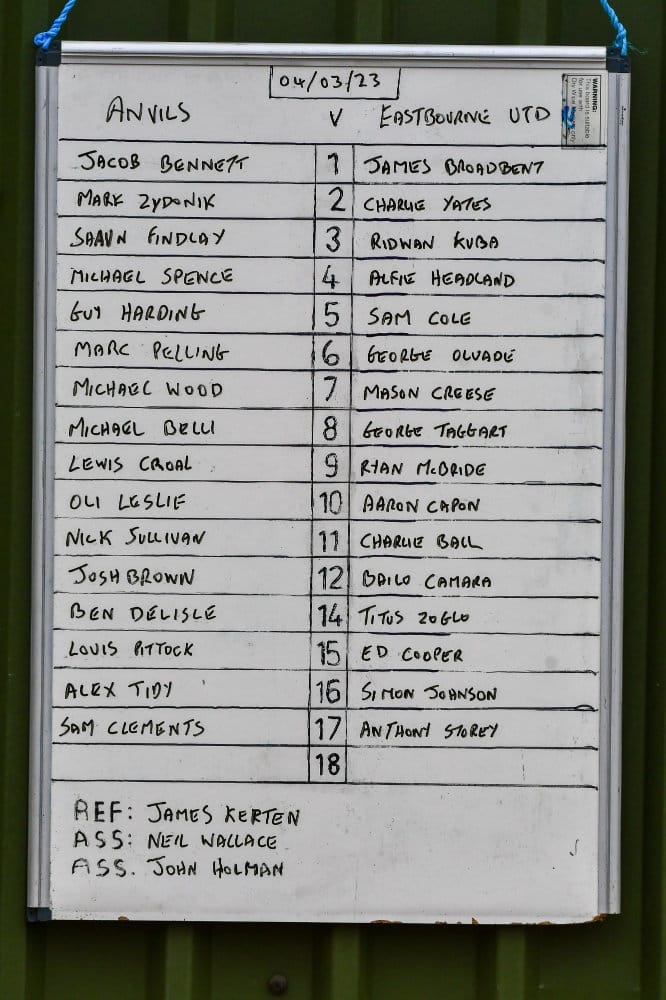 04/03/23
ANVILS V EASTBOURNE UTD
WARNING:
This board is suitable
for use with
Dry Wipe only
JACOB BENNETT 1 JAMES BROADBENT
MARK ZYDONIK 2 CHARLIE YATES
SHAUN FINDLAY 3 RIDWAN KUBA
MICHAEL SPENCE 4 ALFIE HEADLAND
GUY HARDING 5 SAM COLE
MARC PELLING 6 GEORGE OLUADE
MICHAEL WOOD 7 MASON CREESE
MICHAEL BELLI 8 GEORGE TAGGART
LEWIS CROAL 9 RYAN McBRIDE
OLI LESLIE 10 AARON CAPON
NICK SULLIVAN 11 CHARLIE BALL
JOSH BROWN 12 BAILO CAMARA
BEN DELISLE 14 TITUS ZOGLO
LOUIS PITTOCK 15 ED COOPER
ALEX TIDY 16 SIMON JOHNSON
SAM CLEMENTS 17 ANTHONY STOREY
18
REF: JAMES KERTEN
ASS: NEIL WALLACE
ASS. JOHN HOLMAN